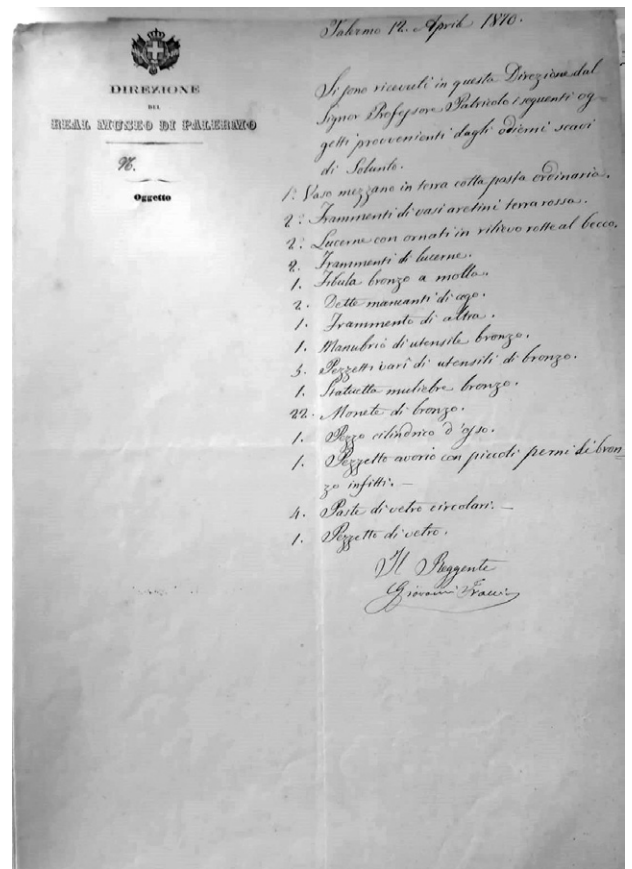 Palermo 12. Aprile 1870.
DIREZIONE
DEL
REAL MUSEO DI PALERMO
N.
Oggetto
Si sono ricevuti in questa Direzione dal
Signor Professore Patricolo i seguenti og-
getti provvenienti dagli odierni scavi
di Solunto.
1. Vaso mezzano in terra cotta pasta ordinaria.
2. Frammenti di vasi aretini terra rossa.
2. Lucerne con ornati in rilievo rotte al becco.
2. Frammenti di lucerne.
1. Fibula bronzo a molla.
2. Dette mancanti di ago.
1. Frammento di altra.
1. Manubrio di utensile bronzo.
5. Pezzetti varî di utensili di bronzo.
1. Statuetta muliebre bronzo.
22. Monete di bronzo.
1. Pezzo cilindrico d'osso.
1. Pezzetto avorio con piccoli perni di bron-
zo infitti. —
4. Paste di vetro circolari. —
1. Pezzetto di vetro.
Il Reggente
Giovanni Fraccia